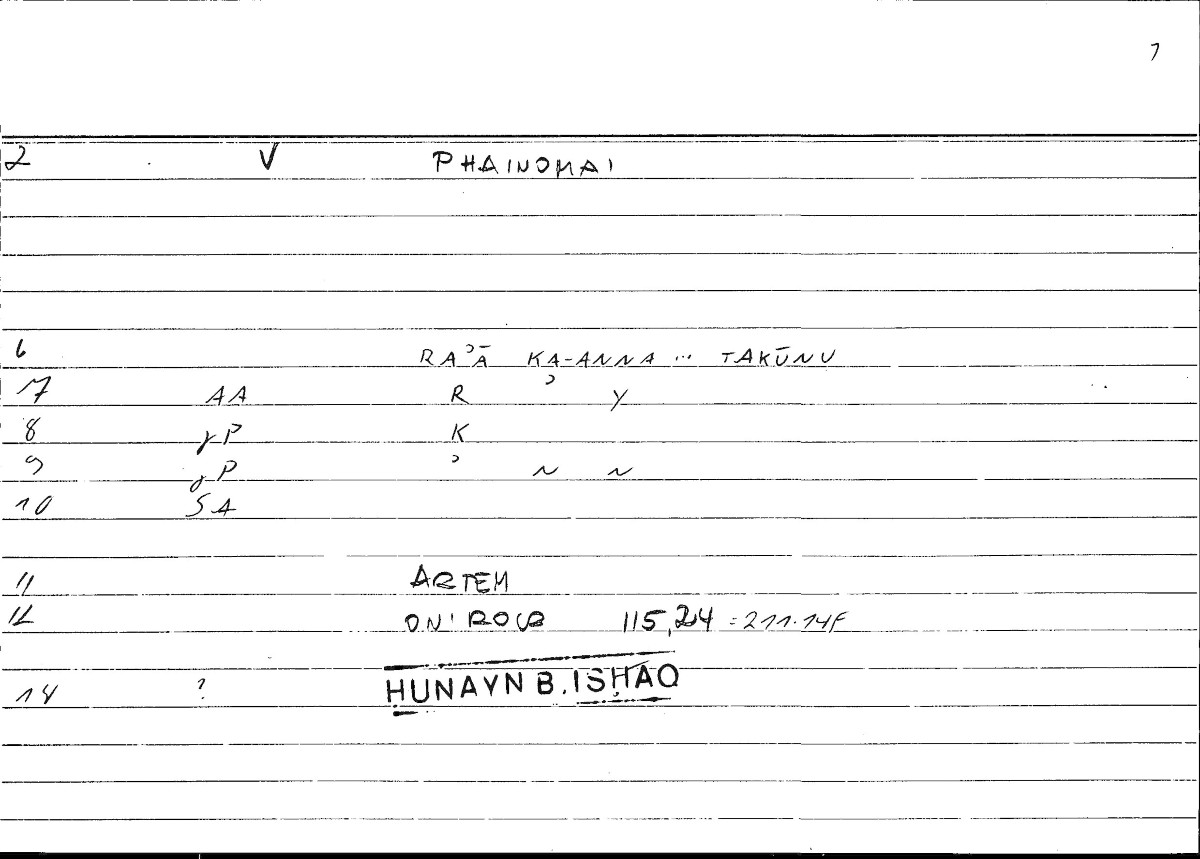 7
2 V PHAINOMAI
6 RAʾĀ KA-ANNA ... TAKŪNU
7 AA R ʾ Y
8 γP K
9 γP ʾ N N
10 SA
11 ARTEM
12 ONIROCR 115,24 = 211.14F
14 ? ḤUNAYN B. ISḤĀQ